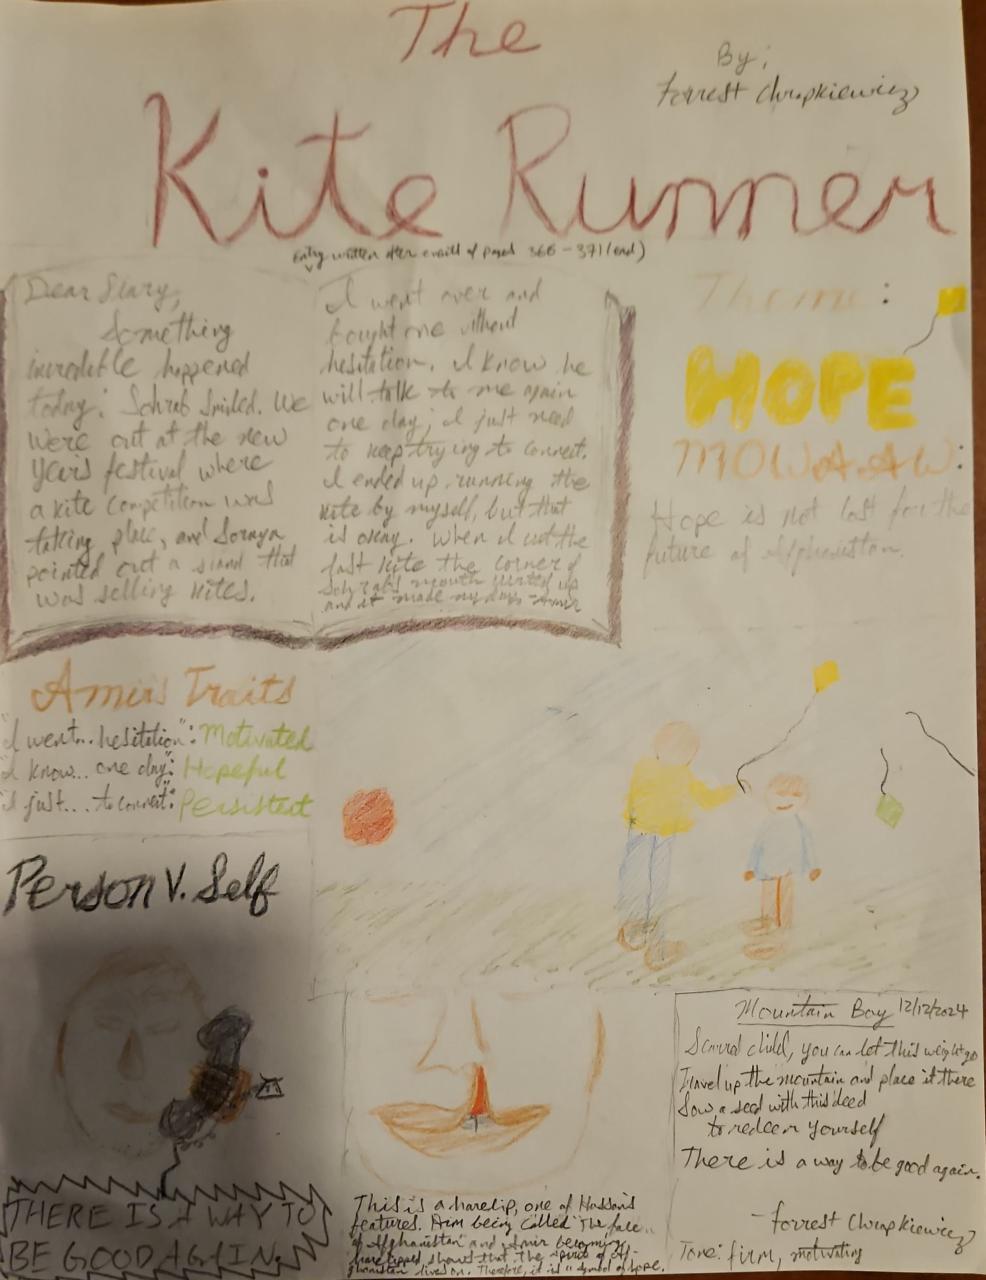 The
Kite Runner
By:
Forrest Chrapkiewicz
Entry written after events of pages 366-371 (end)
Dear Diary,
Something
incredible happened
today: Sohrab smiled. We
were out at the new
years festival where
a kite competition was
taking place, and Soraya
pointed out a stand that
was selling kites.
I went over and
bought one without
hesitation. I know he
will talk to me again
one day; I just need
to keep trying to connect.
I ended up running the
kite by myself, but that
is okay. When I cut the
last kite the corner of
Sohrab's mouth curled up
and it made my day -Amir
Theme:
HOPE
MOWAAW:
Hope is not lost for the
future of Afghanistan.
Amir's Traits
"I went... hesitation": Motivated
"I know... one day": Hopeful
"I just... to connect": Persistent
Person V. Self
THERE IS A WAY TO
BE GOOD AGAIN.
This is a harelip, one of Hassan's
features. Him being called "The face
of Afghanistan" and Amir becoming
harelipped shows that the spirit of Af-
ghanistan lives on. Therefore, it is a symbol of hope.
Mountain Boy 12/12/2024
Scarred child, you can let this weight go
Travel up the mountain and place it there
Sow a seed with this deed
to redeem yourself
There is a way to be good again.
-Forrest Chrapkiewicz
Tone: firm, motivating